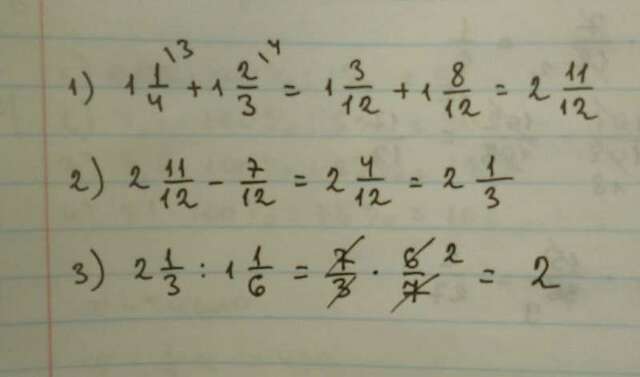 1) 1 1/4 \3 + 1 2/3 \4 = 1 3/12 + 1 8/12 = 2 11/12
2) 2 11/12 - 7/12 = 2 4/12 = 2 1/3
3) 2 1/3 : 1 1/6 = 7/3 · 6/7 2 = 2